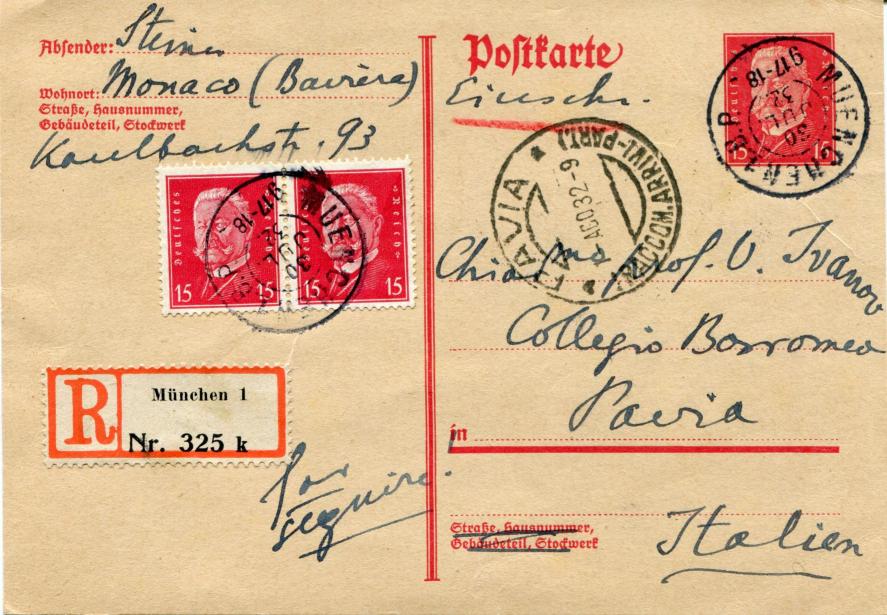 Absender: Steiner
Wohnort: Monaco (Baviera)
Straße, Hausnummer,
Gebäudeteil, Stockwerk
Kaulbachstr. 93
Deutsches Reich
15 15
Deutsches Reich
15 15
MUENCHEN
30 JUL 32
9 17-18
R
München 1
Nr. 325 k
far
seguire!
Postkarte
Einschr.
Deutsches Reich
15 15
MUENCHEN
30 JUL 32
9 17-18
PAVIA
AGO 32-9
(RACCOM. ARRIVI-PART.)
Chiarmo Prof. V. Ivanov
Collegio Borromeo
Pavia
in
Straße, Hausnummer,
Gebäudeteil, Stockwerk
Italien